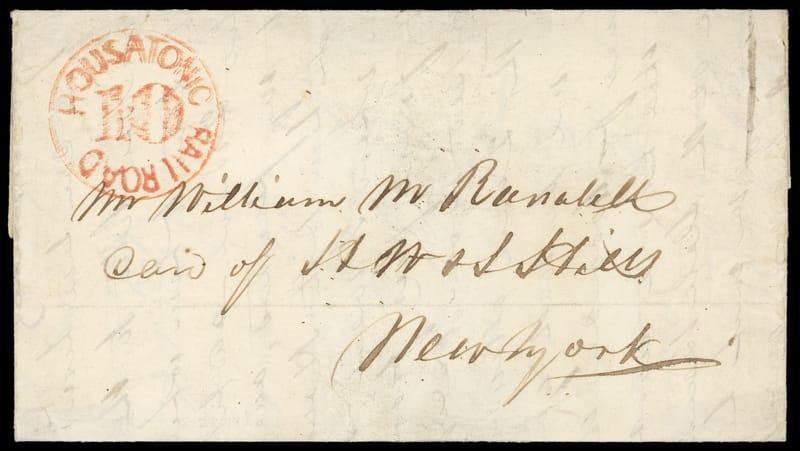 HOUSATONIC RAILROAD
10
Mr William M Randall
care of H W & S Hills
New York